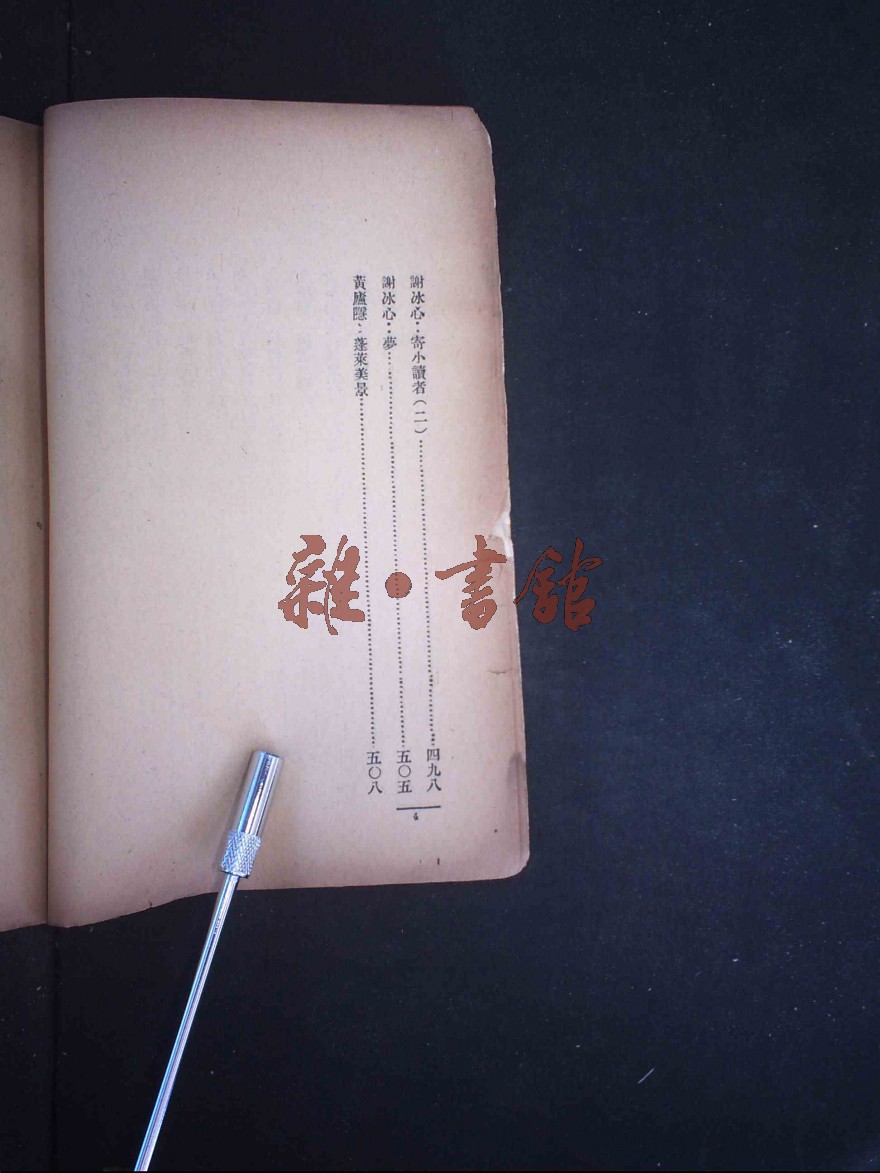 謝冰心：寄小讀者（二）……四九八
謝冰心：夢……五〇五
黃廬隱：蓬萊美景……五〇八
4
雜·書館